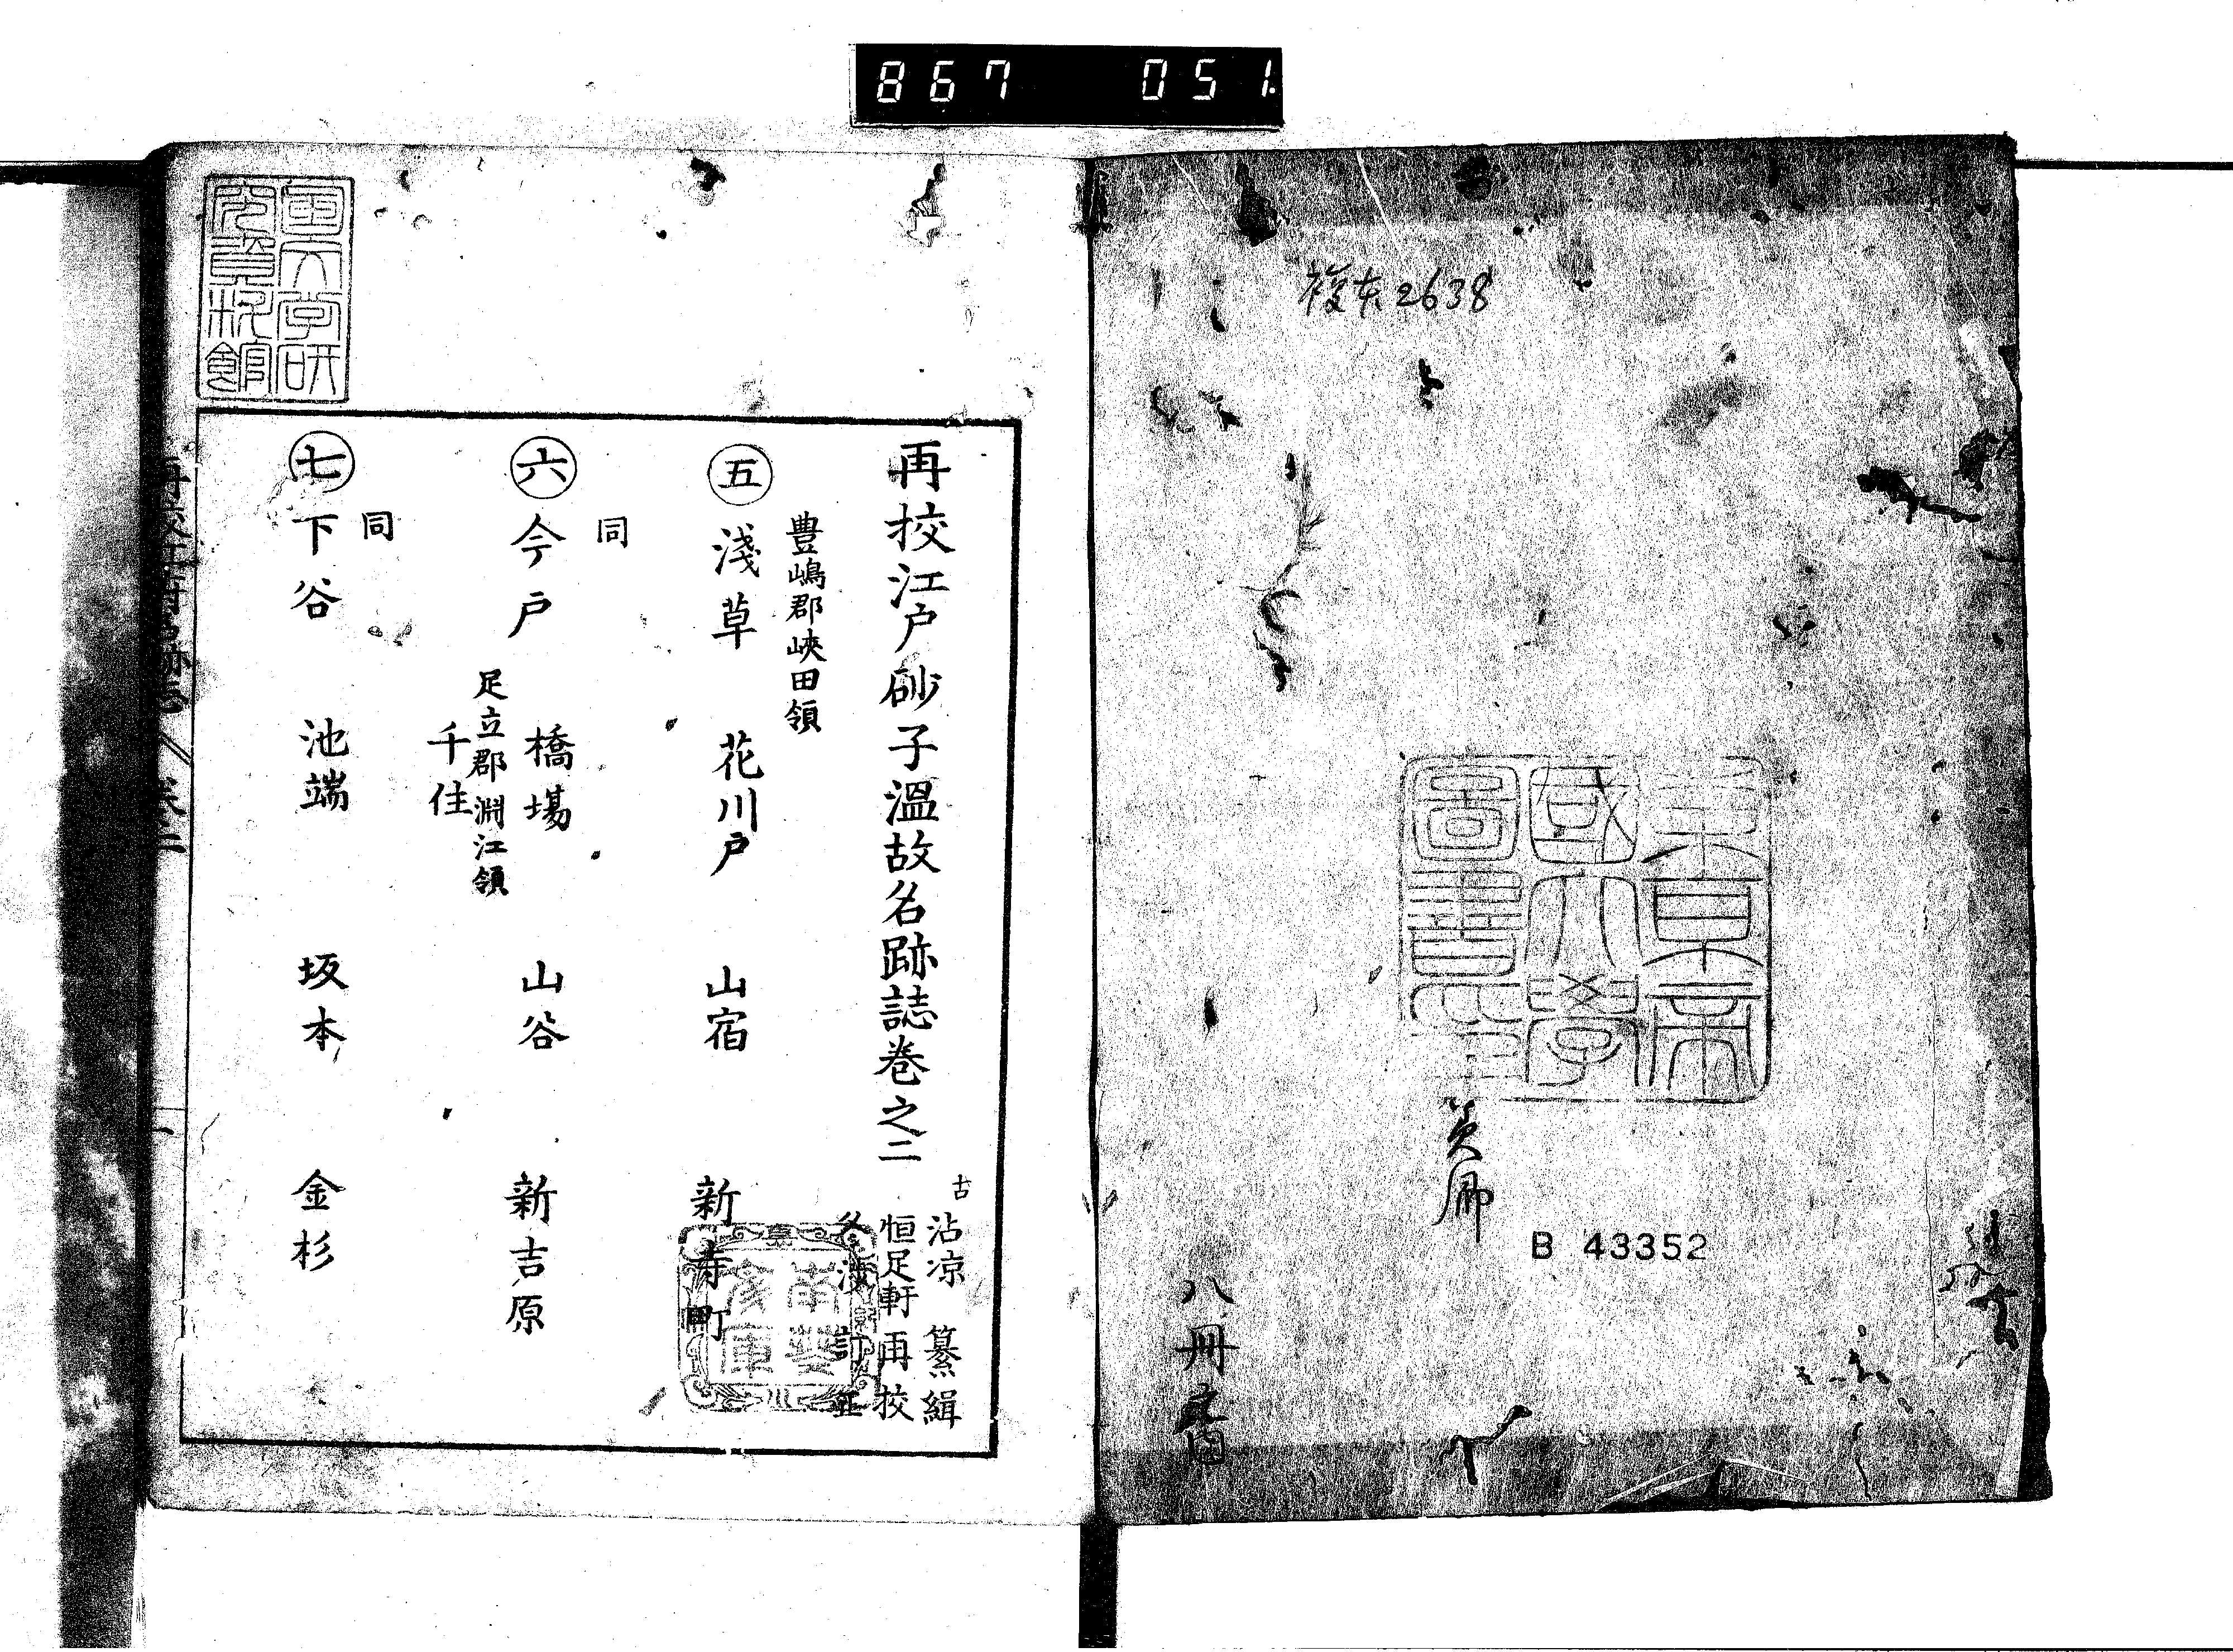 867 051
複本2638
東京帝
国大学
圖書
B 43352
八冊之内
国文学研
究資料館
再校江戸砂子温故名跡誌巻之二
古 沾凉 纂緝
恒足軒再校
訂正
豊嶋郡峽田領
五 淺草 花川戸 山宿 新寺町
同
六 今戸 橋場 山谷 新吉原
足立郡淵江領
千住
同
七 下谷 池端 坂本 金杉